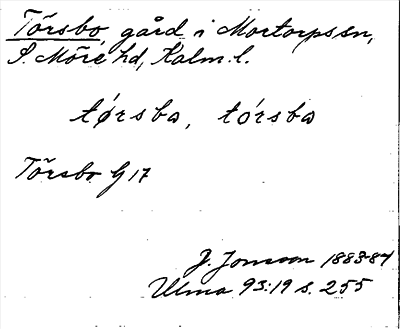 Törsbo, gård i Mortorps sn,
S. Möre hd, Kalm. l.
tǿrsba, tórsba
Törsbo G 17
J. Jonsson 1883-84
Ulma 93:19 s. 255